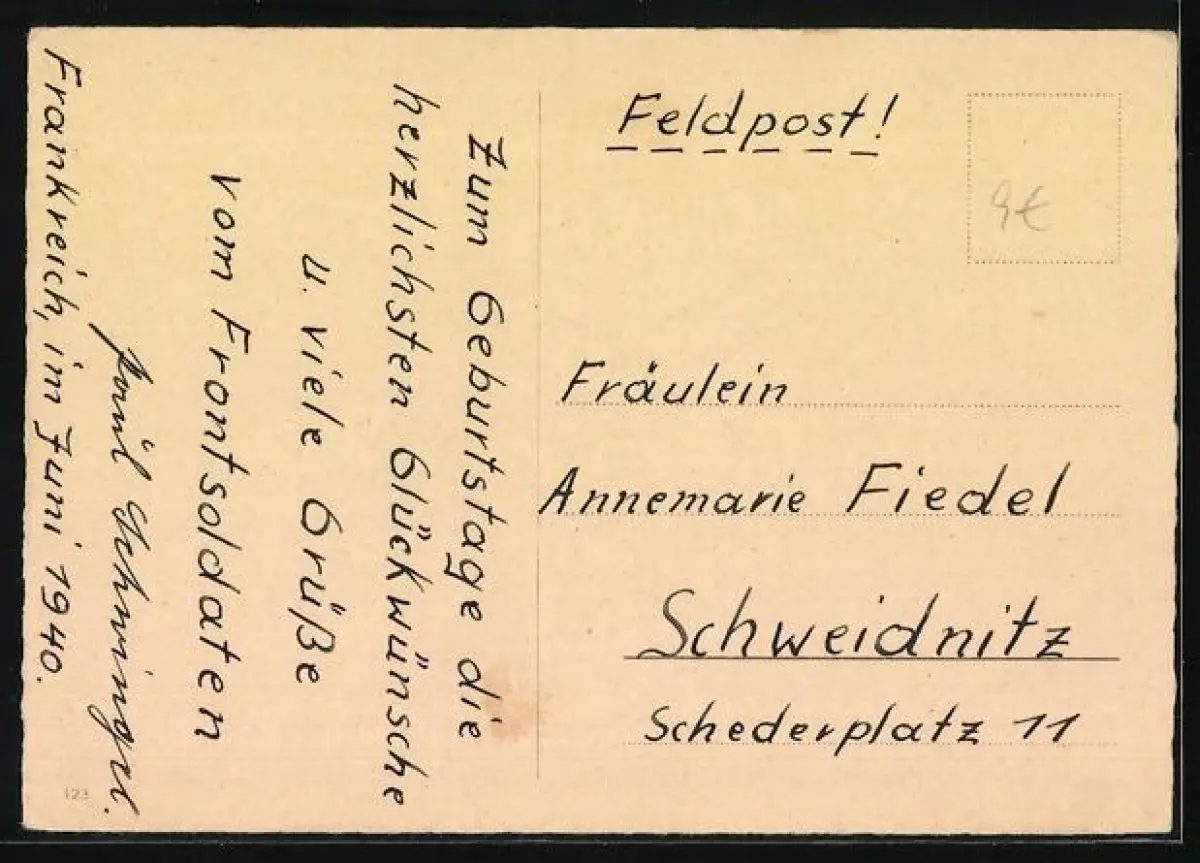 Zum Geburtstage die
herzlichsten Glückwünsche
u. viele Grüße
vom Frontsoldaten
Frankreich, im Juni 1940.
Feldpost!
4€
Fräulein
Annemarie Fiedel
Schweidnitz
Schederplatz 11
123